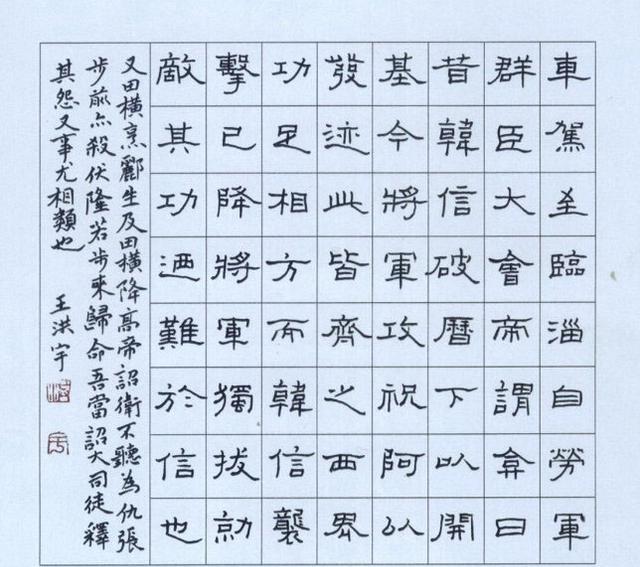 車駕至臨淄自勞軍
群臣大會帝謂弇曰
昔韓信破曆下以開
基今將軍攻祝阿以
發迹此皆齊之西界
功足相方而韓信襲
擊已降將軍獨拔勍
敵其功迺難於信也
又田橫烹酈生及田橫降高帝詔衛不聽為仇張
步前亦殺伏隆若步來歸命吾當詔大司徒釋
其怨又事尤相類也
王洪宇